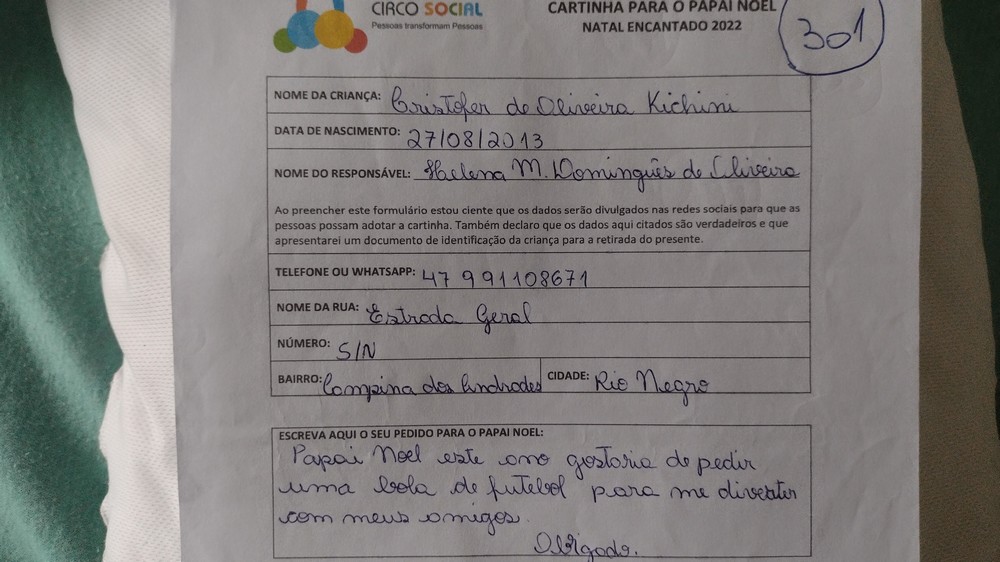 CIRCO SOCIAL
Pessoas transformam Pessoas
CARTINHA PARA O PAPAI NOEL
NATAL ENCANTADO 2022
301
NOME DA CRIANÇA: Cristofer de Oliveira Kichini
DATA DE NASCIMENTO: 27/08/2013
NOME DO RESPONSÁVEL: Helena M. Domingues de Oliveira
Ao preencher este formulário estou ciente que os dados serão divulgados nas redes sociais para que as
pessoas possam adotar a cartinha. Também declaro que os dados aqui citados são verdadeiros e que
apresentarei um documento de identificação da criança para a retirada do presente.
TELEFONE OU WHATSAPP: 47 991108671
NOME DA RUA: Estrada Geral
NÚMERO: S/N
BAIRRO: Campina dos Andrades CIDADE: Rio Negro
ESCREVA AQUI O SEU PEDIDO PARA O PAPAI NOEL:
Papai Noel este ano gostaria de pedir
uma bola de futebol para me divertir
com meus amigos.
Obrigado.